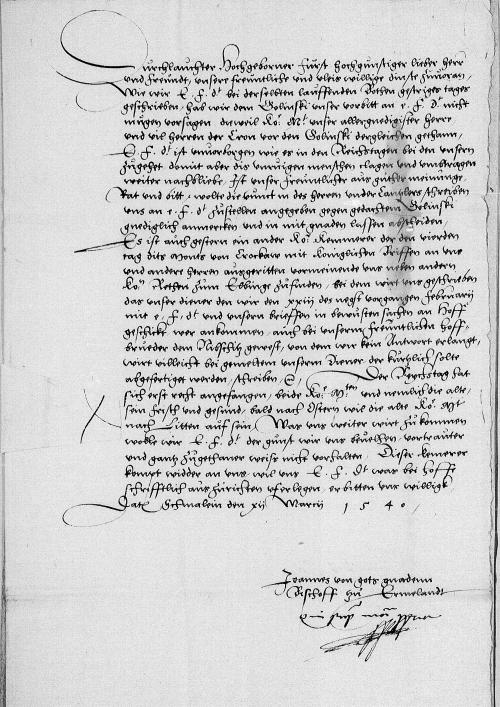 Durchlauchter Hochgeborner Furst hochgunstiger lieber herr
und freundt, unsere freuntliche und vleis willige dinste zuvoran,
Wie wir E. F. Dt. bei derselben lauffenden Bothen gestriges tages
geschrieben, hab wir dem Golinski unser vorbitt an e. F. Dt. nicht
mugen vorsagen, dieweil Ko. Mt. unser allergnedigister herre
und vil herren der Cron vor den Golinski dergleichen gethann,
E. F. Dt. ist unvorborgen wie es in den Reichstagen bei den unsern
zugehet, domit aber dis unruigen menschen clagen und umbtragen
weiter nachbliebe, Ist unser freuntlicher aus guther meinunge
Rat und bitt, wolte die punct in des herren under Canzlers schreiben
uns an e. F. Dt. zustellen angegeben gegen gedachtem Golinski
gnediglich anmercken und in mit gnaden lassen abscheiden,
Es ist auch gestern ein ander Ko. Kemmerer der den vierden
tag dits monts von Crockaw mit koniglichen Briffen an uns
und andere herren ausgeritten vormeinende uns neben andern
Ko. Rethen zum Elbinge zufinden, bei dem wirt uns geschrieben
das unser diener den wir den xxiii des negst vorgangen februarii
mit e. F. Dt. und unsern brieffen in bewusten sachen an hoff
geschickt wer ankommen, auch bei unserm freuntlichen hoff-
brueder dem Nibschitz gewest, von dem wir kein Antwort erlangt,
wirt villeicht bei gemeltem unserm Diener der kurzlich solte
abgefertiget werden schreiben, Der Reichstag hat
sich erst recht angefangen, beide Ko. Mten. und nemlich die alte
sein frisch und gesund, bald nach Ostern wil die alte Ko. Mt.
nach Litten auff sein, Was uns weiter wirt zu kommen
wolle wir E. F. Dt. der gunst wir uns bevelhen, vortrauter
und gantz zugethaner weise nicht vorhalten, Dieser kemerer
kompt widder an uns, wil uns E. F. Dt. was bei hoffe
schrifftlich auszurichten ufferlegen, erbitten uns willigk
Dat. Schmalein den xii Marcii 1540,
Joannes von gots gnadenn
Bischoff zu Ermelandt